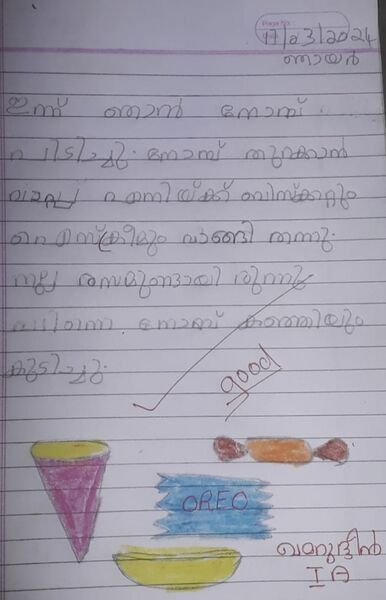 Page No.
17/03/2024
ഞായർ
ഇന്ന് ഞാൻ നോമ്പ്
പിടിച്ചു. നോമ്പ് തുറക്കാൻ
വാപ്പ എനിയ്ക്ക് ബിസ്കറ്റും
ഐസ്ക്രീമും വാങ്ങി തന്നു.
നല്ല രസമുണ്ടായിരുന്നു
നോമ്പ് കഞ്ഞിയും
കുടിച്ചു.
good
OREO
ഖമറുദ്ദീൻ
I A